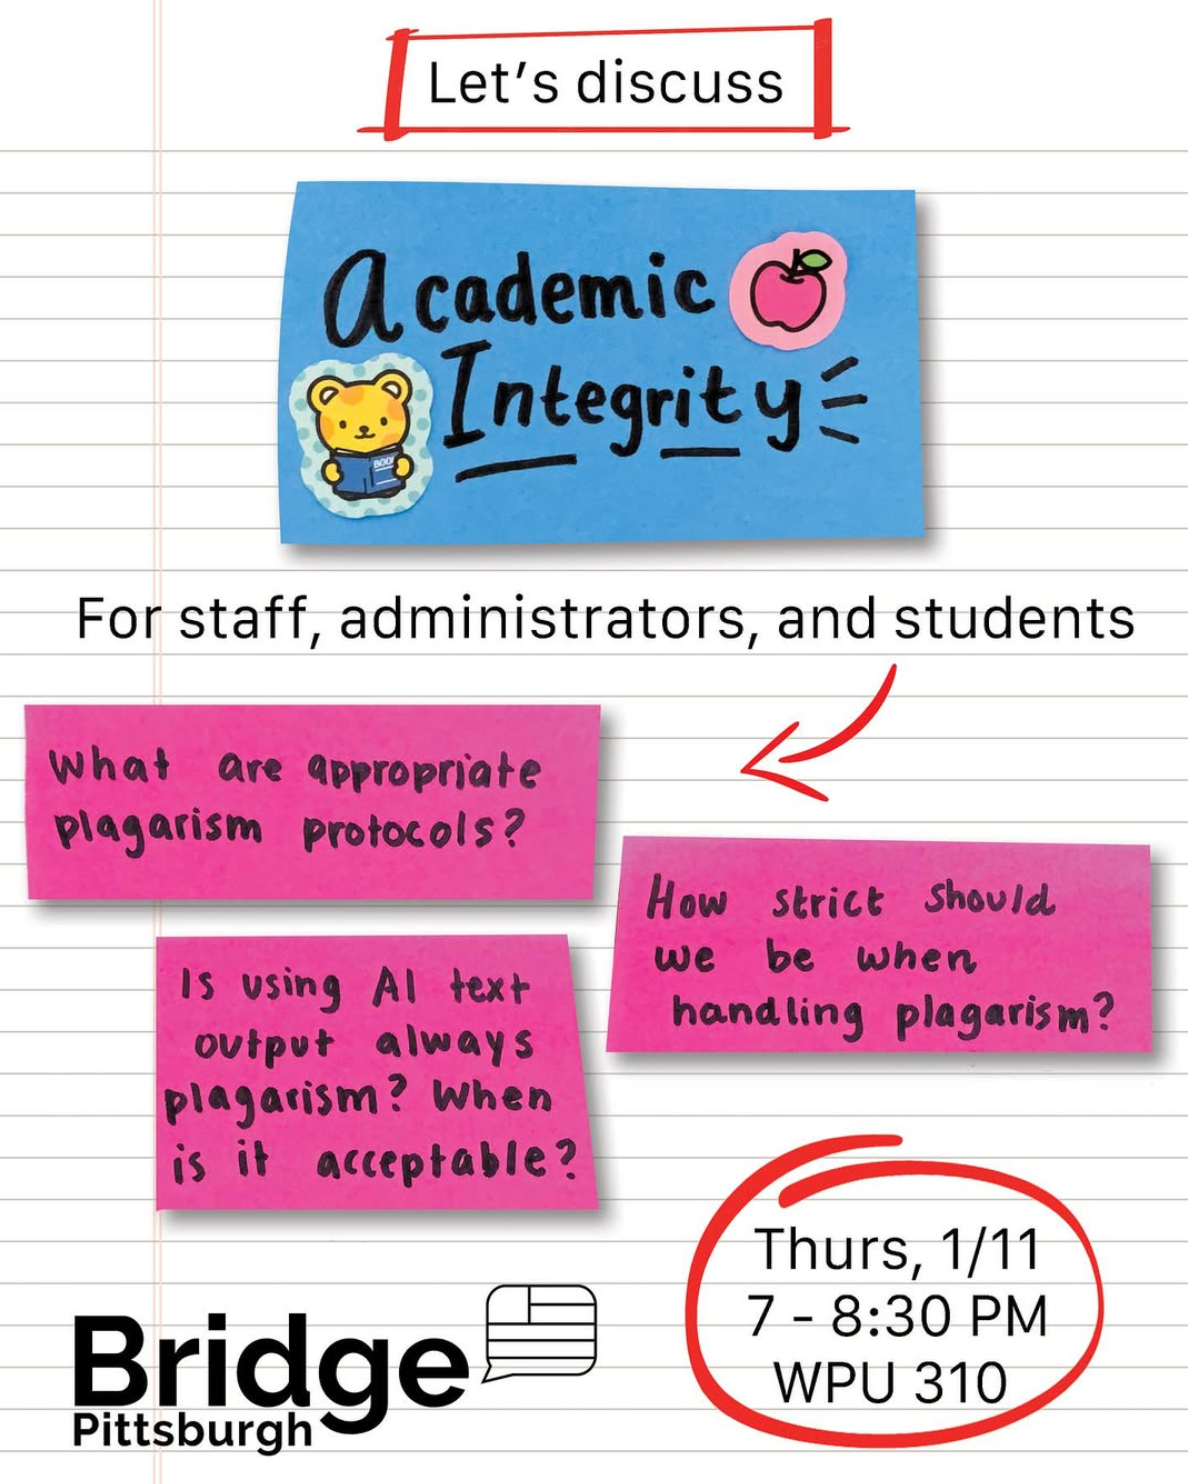 Let's discuss
Academic
Integrity
BOOK
For staff, administrators, and students
What are appropriate
plagarism protocols?
How strict should
we be when
handling plagarism?
Is using AI text
output always
plagarism? When
is it acceptable?
Thurs, 1/11
7 - 8:30 PM
WPU 310
Bridge
Pittsburgh